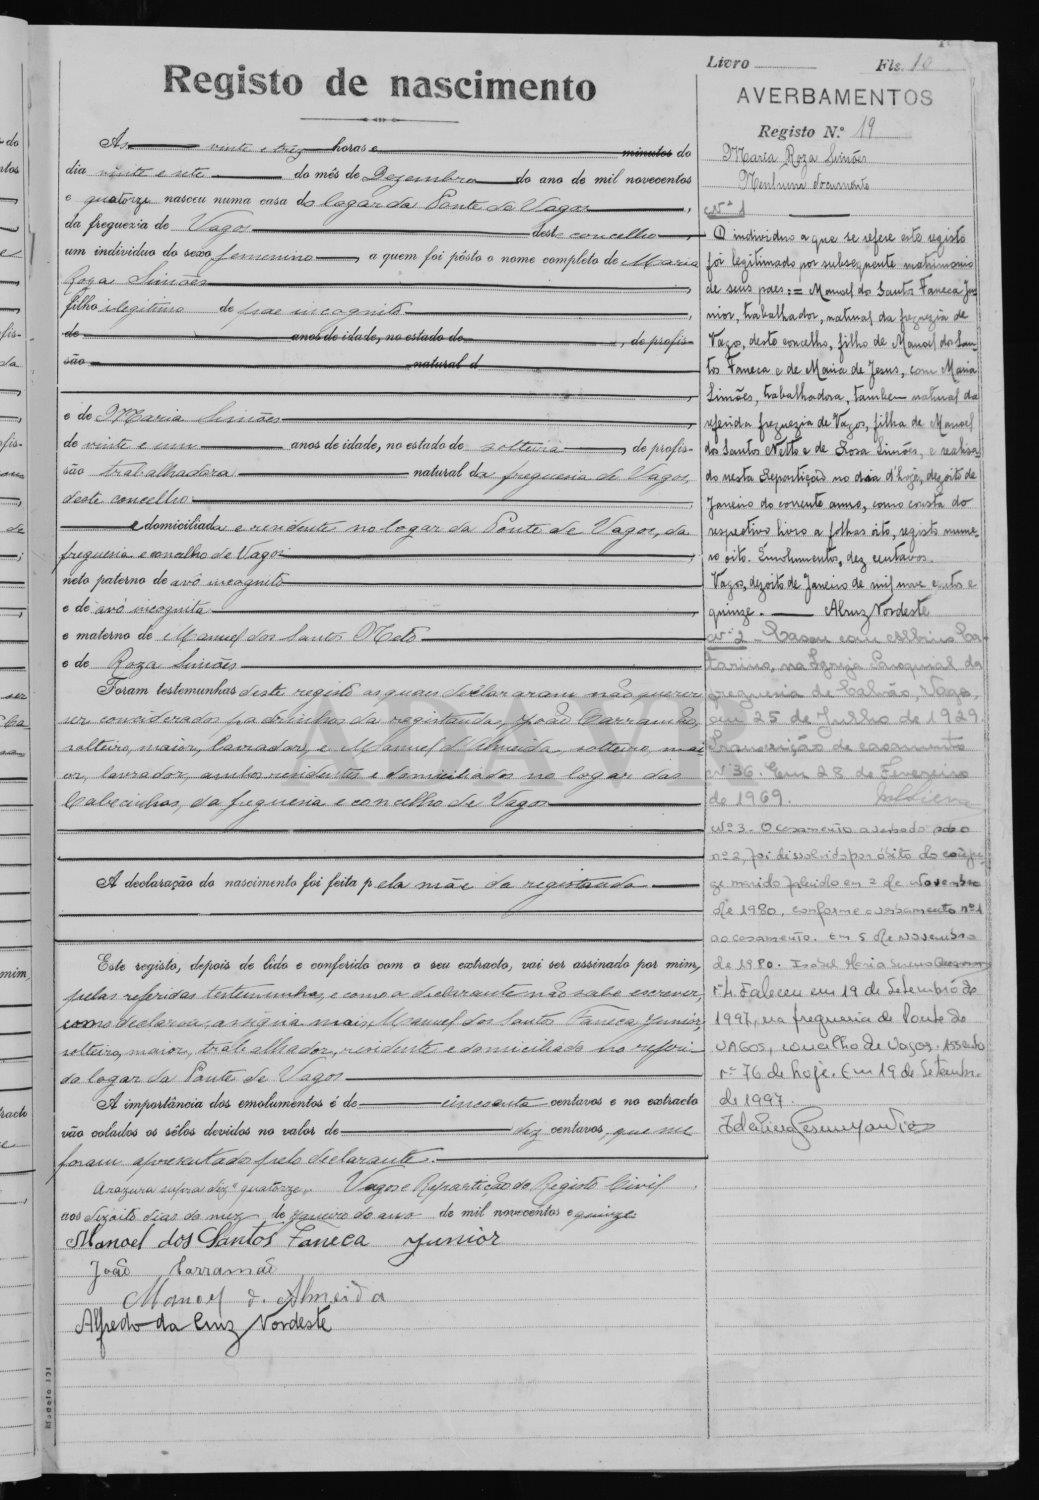 Registo de nascimento
Às vinte e trez horas e minutos do
dia vinte e sete do mês de Dezembro do ano de mil novecentos
e quatorze nasceu numa casa do logar da Ponte de Vagos,
da freguezia de Vagos deste concelho,
um individuo do sexo femenino, a quem foi pôsto o nome completo de Maria
Roza Simões
filho ilegitimo de pae incognito,
de anos de idade, no estado de, de profis-
são natural d
e de Maria Simões
de vinte e um anos de idade, no estado de solteira, de profis-
são trabalhadora natural da freguesia de Vagos,
deste concelho
e domiciliada e residente no logar da Ponte de Vagos, da
freguesia e concelho de Vagos;
neto paterno de avô incognito
e de avó incognita
e materno de Manuel dos Santos Neto
e de Roza Simões
Foram testemunhas deste registo as quaes declararam não querer
ser considerados padrinhos da registanda, João Carramão,
solteiro, maior, lavrador, e Manuel d'Almeida, solteiro, mai
or, lavrador, ambos residentes e domiciliados no logar das
Cabecinhas, da freguesia e concelho de Vagos
A declaração do nascimento foi feita pela mãe da registanda
Este registo, depois de lido e conferido com o seu extracto, vai ser assinado por mim,
pelas referidas testemunhas, e como a declarante não sabe escrever,
como declarou, assigna mais, Manuel dos Santos Faneca Junior,
solteiro, maior, trabalhador, residente e domiciliado no referi-
do logar da Ponte de Vagos
A importância dos emolumentos é de cincoenta centavos e no extracto
vão colados os sêlos devidos no valor de dez centavos, que me
foram apresentados pelo declarante.
A razura supra diz "quatorze". Vagos e Repartição do Registo Civil,
aos dizoito dias do mez de Janeiro do ano de mil novecentos e quinze
Manoel dos Santos Faneca Junior
João Carramão
Manoel d. Almeida
Alfredo da Cruz Nordeste
Modelo 131
ADAVR
Livro Fls. 10
AVERBAMENTOS
Registo N.º 19
Maria Roza Simões
Nenhum documento
Nº 1
O individuo a que se refere este registo
foi legitimado por subsequente matrimonio
de seus paes: = Manoel dos Santos Faneca Ju-
nior, trabalhador, natural da freguezia de
Vagos, deste concelho, filho de Manoel dos San-
tos Faneca e de Maria de Jesus, com Maria
Simões, trabalhadora, tambem natural da
referida freguezia de Vagos, filha de Manoel
dos Santos Netto e de Rosa Simões, e realisa-
do nesta Repartição no dia d'hoje, dezoito de
Janeiro do corrente anno, como consta do
respectivo livro a folhas oito, registo nume-
ro oito. Emolumentos, dez centavos.
Vagos, dezoito de Janeiro de mil nove centos e
quinze. Alcruz Nordeste
Nº 2 - Casou com Albino Ca-
tarino, na Igreja Paroquial da
freguesia de Calvão, Vagos,
em 25 de Julho de 1929.
Transcrição de casamento
Nº 36. Em 28 de Fevereiro
de 1969.
Nº 3 - O casamento averbado sob o
nº 2, foi dissolvido por óbito do cônju-
ge marido falecido em 2 de Novembro
de 1980, conforme averbamento nº 1
ao casamento. Em 5 de Novembro
de 1980. Isabel Maria
Nº 4. Faleceu em 19 de Setembro de
1997, na freguesia de Ponte de
VAGOS, concelho de Vagos. Assento
nº 76 de hoje. Em 19 de Setembro
de 1997.